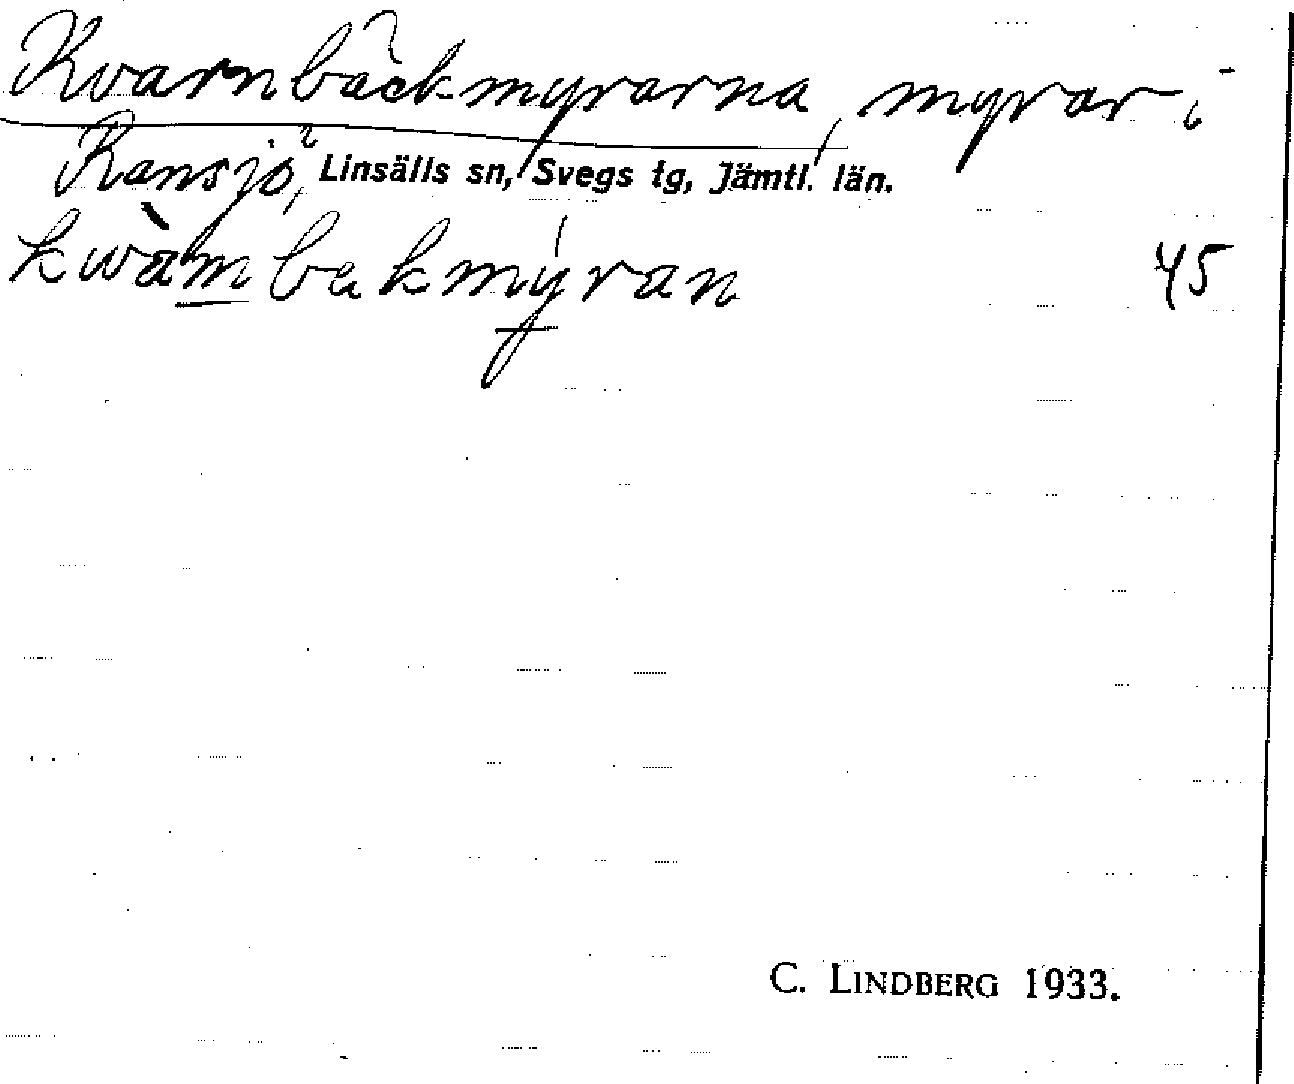 Kvarnbäckmyrarna, myrar i
Ransjö, Linsälls sn, Svegs tg, Jämtl. län.
kwàmbakmýran 45
C. LINDBERG 1933.